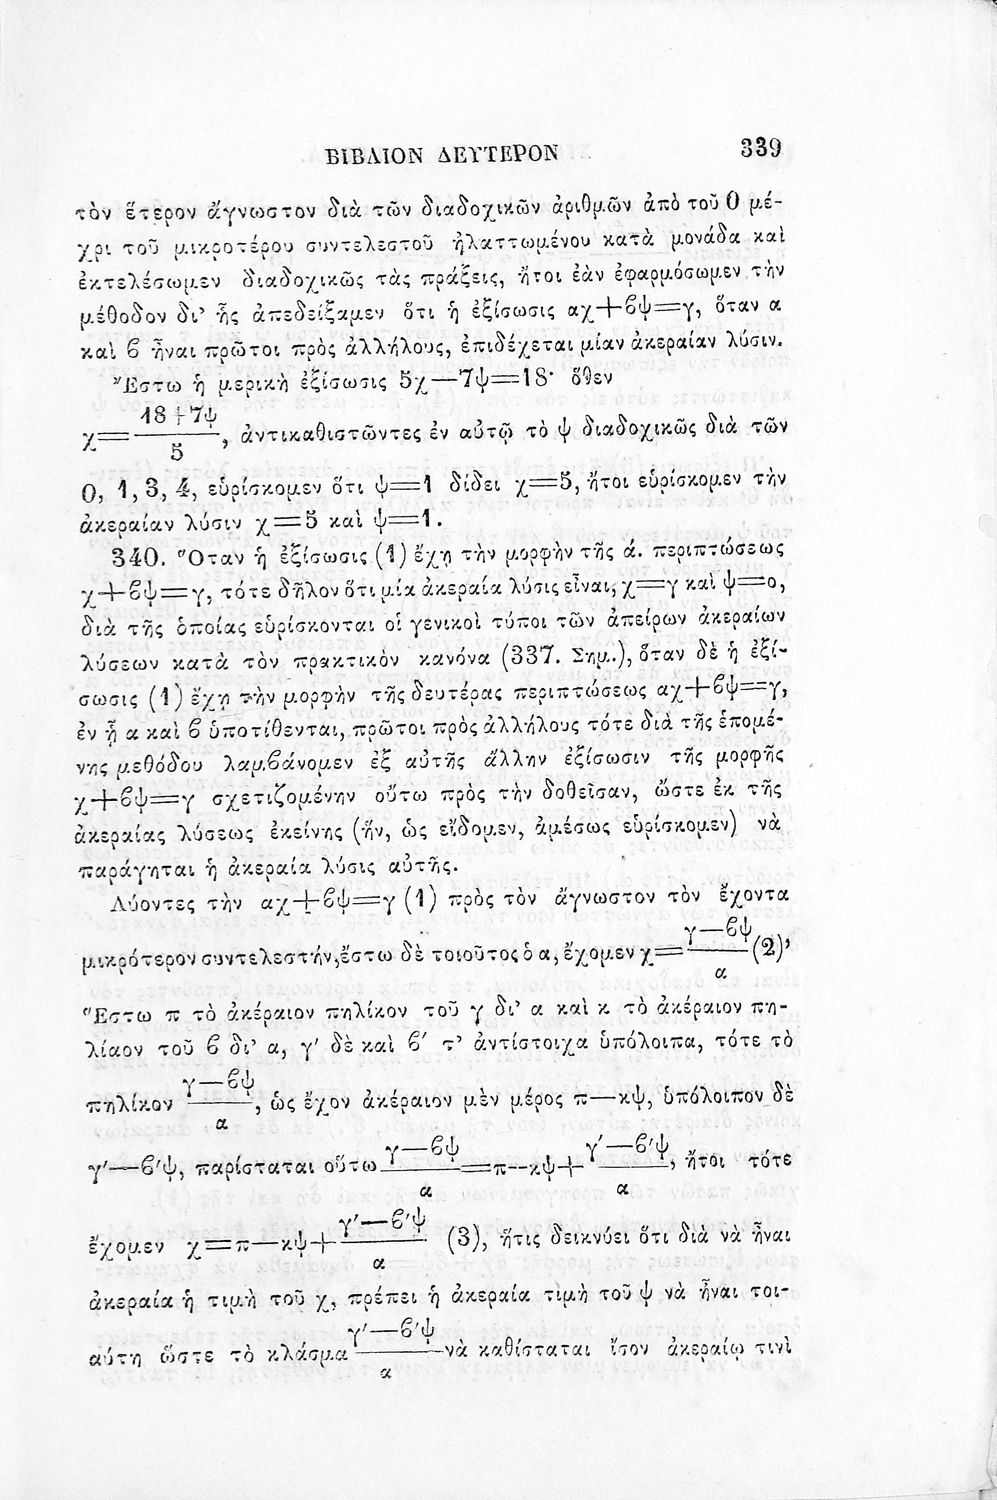 ΒΙΒΛΙΟΝ ΔΕΥΤΕΡΟΝ 339
τὸν ἕτερον ἄγνωστον διὰ τῶν διαδοχικῶν ἀριθμῶν ἀπὸ τοῦ 0 μέ-
χρι τοῦ μικροτέρου συντελεστοῦ ἠλαττωμένου κατὰ μονάδα καὶ
ἐκτελέσωμεν διαδοχικῶς τὰς πράξεις, ἤτοι ἐὰν ἐφαρμόσωμεν τὴν
μέθοδον δι' ἧς ἀπεδείξαμεν ὅτι ἡ ἐξίσωσις αχ+βψ=γ, ὅταν α
καὶ β ἦναι πρῶτοι πρὸς ἀλλήλους, ἐπιδέχεται μίαν ἀκεραίαν λύσιν.
Ἔστω ἡ μερικὴ ἐξίσωσις 5χ—7ψ=18· ὅθεν
χ=(18+7ψ)/5, ἀντικαθιστῶντες ἐν αὐτῷ τὸ ψ διαδοχικῶς διὰ τῶν
0, 1, 3, 4, εὑρίσκομεν ὅτι ψ=1 δίδει χ=5, ἤτοι εὑρίσκομεν τὴν
ἀκεραίαν λύσιν χ=5 καὶ ψ=1.
340. Ὅταν ἡ ἐξίσωσις (1) ἔχῃ τὴν μορφὴν τῆς ά. περιπτώσεως
χ+βψ=γ, τότε δῆλον ὅτι μία ἀκεραία λύσις εἶναι, χ=γ καὶ ψ=ο,
διὰ τῆς ὁποίας εὑρίσκονται οἱ γενικοὶ τύποι τῶν ἀπείρων ἀκεραίων
λύσεων κατὰ τὸν πρακτικὸν κανόνα (337. Σημ.), ὅταν δὲ ἡ ἐξί-
σωσις (1) ἔχῃ τὴν μορφὴν τῆς δευτέρας περιπτώσεως αχ+βψ=γ,
ἐν ᾗ α καὶ β ὑποτίθενται, πρῶτοι πρὸς ἀλλήλους τότε διὰ τῆς ἑπομέ-
νης μεθόδου λαμβάνομεν ἐξ αὐτῆς ἄλλην ἐξίσωσιν τῆς μορφῆς
χ+βψ=γ σχετιζομένην οὕτω πρὸς τὴν δοθεῖσαν, ὥστε ἐκ τῆς
ἀκεραίας λύσεως ἐκείνης (ἥν, ὡς εἴδομεν, ἀμέσως εὑρίσκομεν) νὰ
παράγηται ἡ ἀκεραία λύσις αὐτῆς.
Λύοντες τὴν αχ+βψ=γ (1) πρὸς τὸν ἄγνωστον τὸν ἔχοντα
μικρότερον συντελεστήν, ἔστω δὲ τοιοῦτος ὁ α, ἔχομεν χ=(γ—βψ)/α (2)'
Ἔστω π τὸ ἀκέραιον πηλίκον τοῦ γ δι' α καὶ κ τὸ ἀκέραιον πη-
λίαον τοῦ β δι' α, γ' δὲ καὶ β' τ' ἀντίστοιχα ὑπόλοιπα, τότε τὸ
πηλίκον (γ—βψ)/α, ὡς ἔχον ἀκέραιον μὲν μέρος π—κψ, ὑπόλοιπον δὲ
γ'—β'ψ, παρίσταται οὕτω (γ—βψ)/α=π—κψ+(γ'—β'ψ)/α, ἤτοι τότε
ἔχομεν χ=π—κψ+(γ'—β'ψ)/α (3), ἥτις δεικνύει ὅτι διὰ νὰ ἦναι
ἀκεραία ἡ τιμὴ τοῦ χ, πρέπει ἡ ἀκεραία τιμὴ τοῦ ψ νὰ ἦναι τοι-
αύτη ὥστε τὸ κλάσμα (γ'—β'ψ)/α νὰ καθίσταται ἴσον ἀκεραίῳ τινὶ